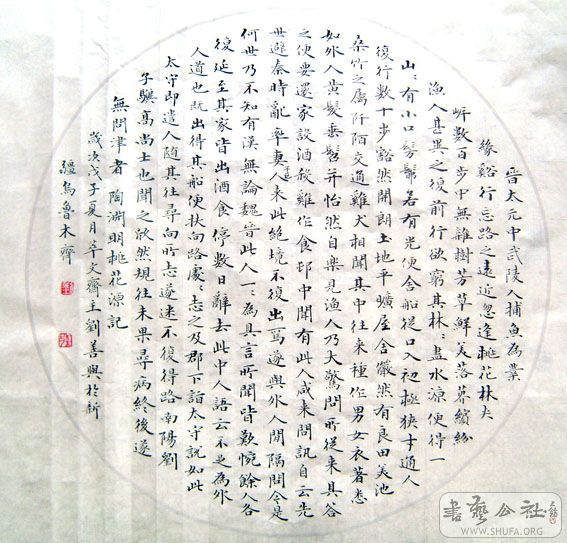 晋太元中武陵人捕魚為業
緣谿行忘路之遠近忽逢桃花林夹
岍數百步中無雜樹芳草鮮美落英繽紛
漁人甚異之復前行欲窮其林〻盡水源便得一
山〻有小口髣髴若有光便舍船從口入初極狹才通人
復行數十步豁然開朗土地平曠屋舍儼然有良田美池
桑竹之属阡陌交通雞犬相聞其中往来種作男女衣著悉
如外人黄髮垂髫并怡然自樂見漁人乃大驚問所從来具答
之便要還家設酒殺雞作食邨中聞有此人咸来問訊自云先
世避秦時亂率妻人来此絶境不復出焉遂與外人間隔問今是
何世乃不知有漢無論魏晉此人一〻為具言所聞皆歎惋餘人各
復延至其家皆出酒食停數日辭去此中人語云不足為外
人道也既出得其船便扶向路處〻志之及郡下詣太守說如此
太守即遣人随其往尋向所志遂迷不復得路南陽劉
子驥高尚士也聞之欣然規往未果尋病終後遂
無問津者 陶淵明桃花源記
歲次戊子夏月萃文齋主劉善興於新
疆烏魯木齊
書藝公社
WWW.SHUFA.ORG